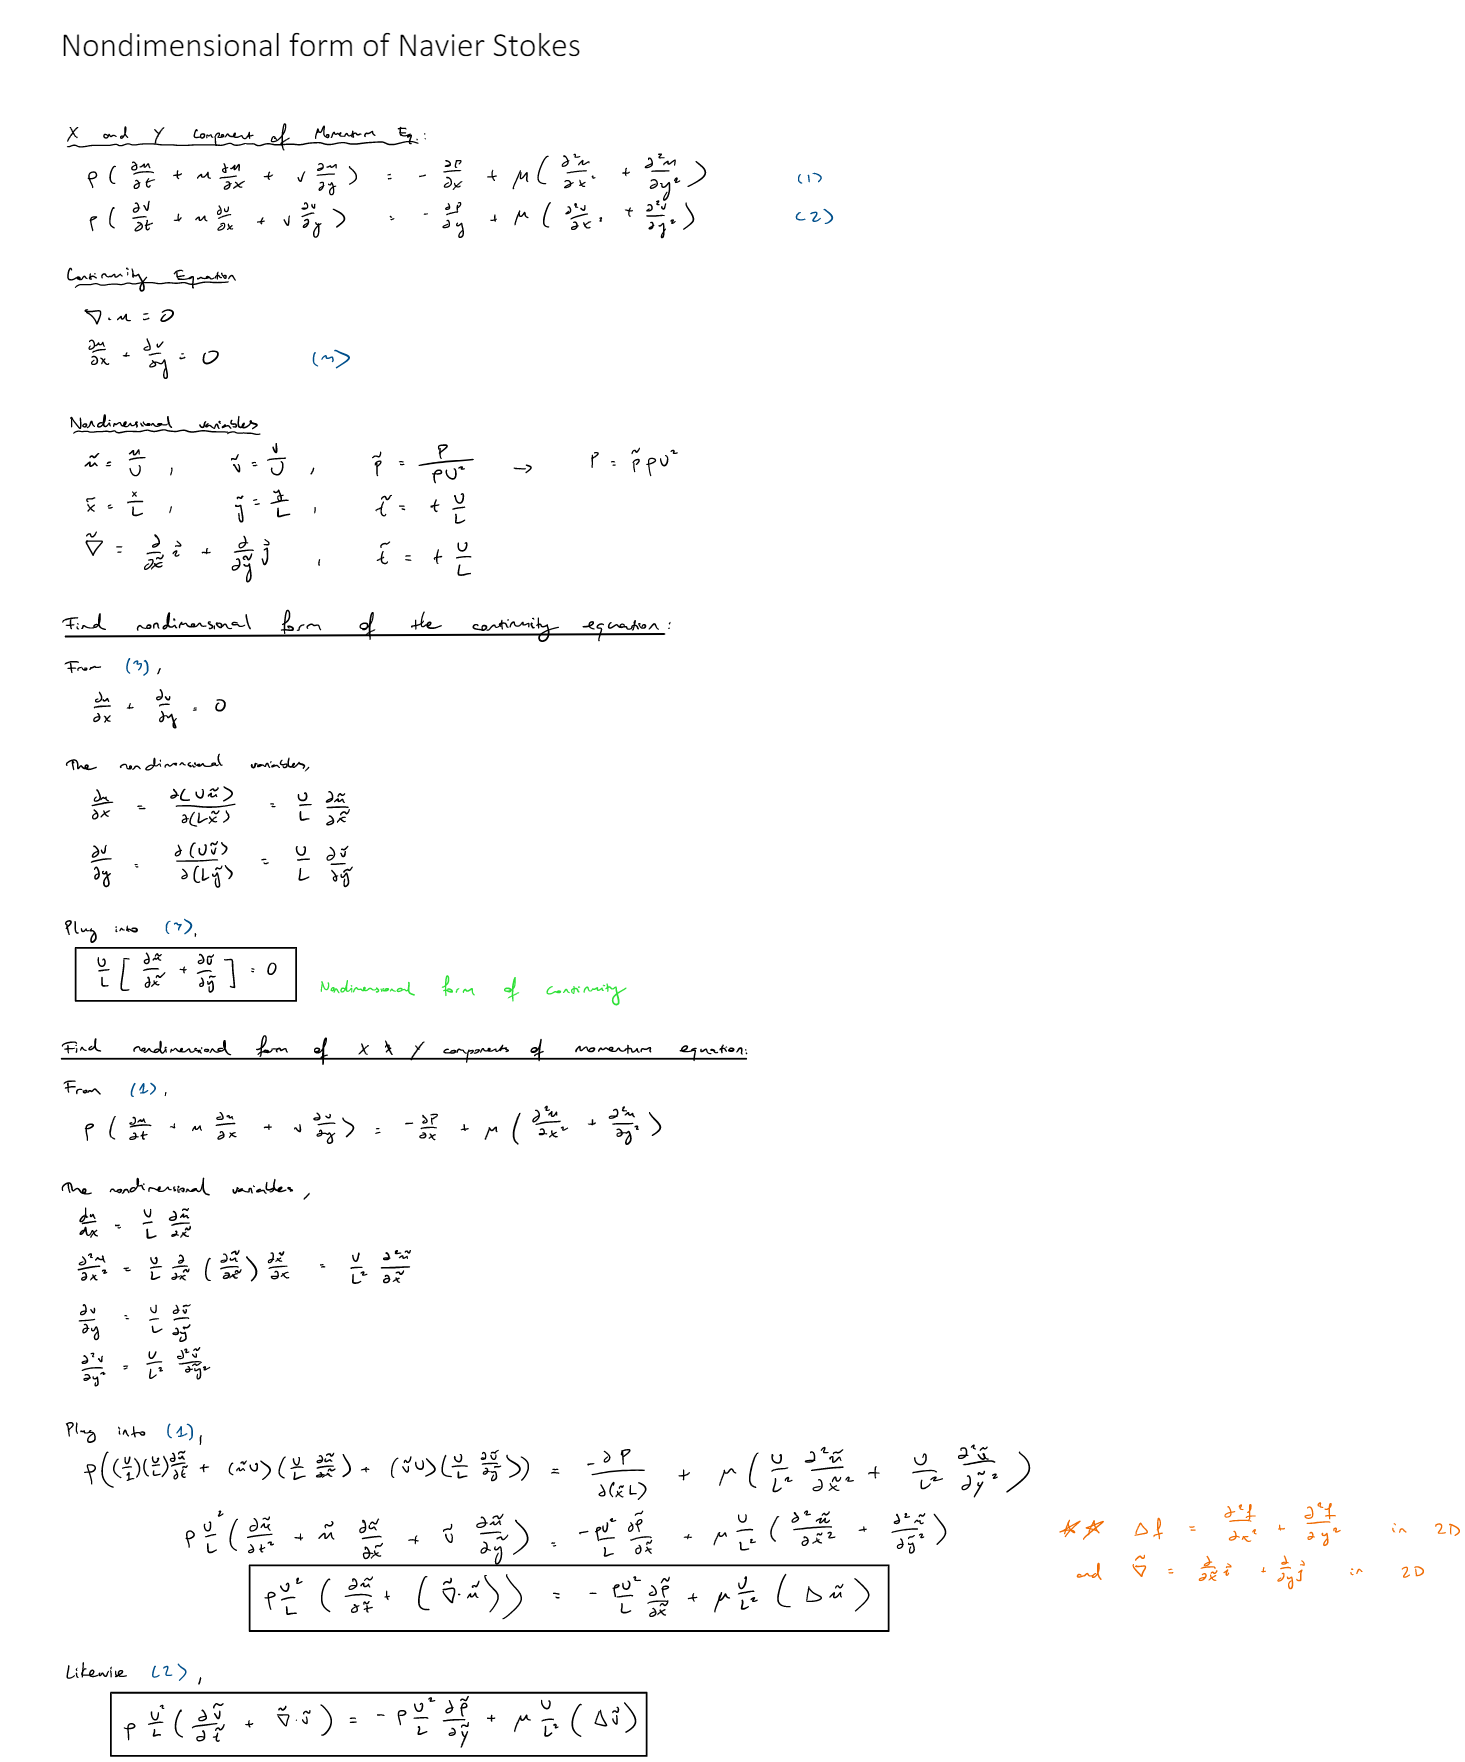 Nondimensional form of Navier Stokes
X and Y component of Momentum Eq.:
ρ ( ∂u/∂t + u ∂u/∂x + v ∂u/∂y ) = - ∂P/∂x + μ ( ∂²u/∂x² + ∂²u/∂y² ) (1)
ρ ( ∂v/∂t + u ∂v/∂x + v ∂v/∂y ) = - ∂P/∂y + μ ( ∂²v/∂x² + ∂²v/∂y² ) (2)
Continuity Equation
∇·u = 0
∂u/∂x + ∂v/∂y = 0 (3)
Nondimensional variables
ũ = u/U , ṽ = v/U , p̃ = P/ρU² → P = p̃ρU²
x̃ = x/L , ỹ = y/L , t̃ = t U/L
∇̃ = ∂/∂x̃ i⃗ + ∂/∂ỹ j⃗ , t̃ = t U/L
Find nondimensional form of the continuity equation:
From (3),
∂u/∂x + ∂v/∂y = 0
The nondimensional variables,
∂u/∂x = ∂(Uũ)/∂(Lx̃) = U/L ∂ũ/∂x̃
∂v/∂y = ∂(Uṽ)/∂(Lỹ) = U/L ∂ṽ/∂ỹ
Plug into (3),
U/L [ ∂ũ/∂x̃ + ∂ṽ/∂ỹ ] = 0 Nondimensional form of continuity
Find nondimensional form of X & Y components of momentum equation:
From (1),
ρ ( ∂u/∂t + u ∂u/∂x + v ∂v/∂y ) = - ∂P/∂x + μ ( ∂²u/∂x² + ∂²u/∂y² )
The nondimensional variables,
du/dx = U/L ∂ũ/∂x̃
∂²u/∂x² = U/L ∂/∂x̃ ( ∂ũ/∂x̃ ) ∂x̃/∂x = U/L² ∂²ũ/∂x̃²
∂v/∂y = U/L ∂ṽ/∂ỹ
∂²v/∂y² = U/L² ∂²ṽ/∂ỹ²
Plug into (1),
ρ((U/1)(U/L)∂ũ/∂t̃ + (ũU)(U/L ∂ũ/∂x̃) + (ṽU)(U/L ∂ṽ/∂ỹ)) = -∂P/∂(x̃L) + μ ( U/L² ∂²ũ/∂x̃² + U/L² ∂²ũ/∂ỹ² )
ρ U²/L ( ∂ũ/∂t² + ũ ∂ũ/∂x̃ + ṽ ∂ũ/∂ỹ ) = -ρU²/L ∂p̃/∂x̃ + μ U/L² ( ∂²ũ/∂x̃² + ∂²ũ/∂ỹ² ) ** Δf = ∂²f/∂x² + ∂²f/∂y² in 2D
and ∇̃ = ∂/∂x̃ i⃗ + ∂/∂y j⃗ in 2D
ρ U²/L ( ∂ũ/∂t̃ + ( ∇̃·ũ )) = - ρU²/L ∂p̃/∂x̃ + μ U/L² ( Δũ )
Likewise (2),
ρ U²/L ( ∂ṽ/∂t̃ + ∇̃·ṽ ) = - ρ U²/L ∂p̃/∂ỹ + μ U/L² ( Δṽ )